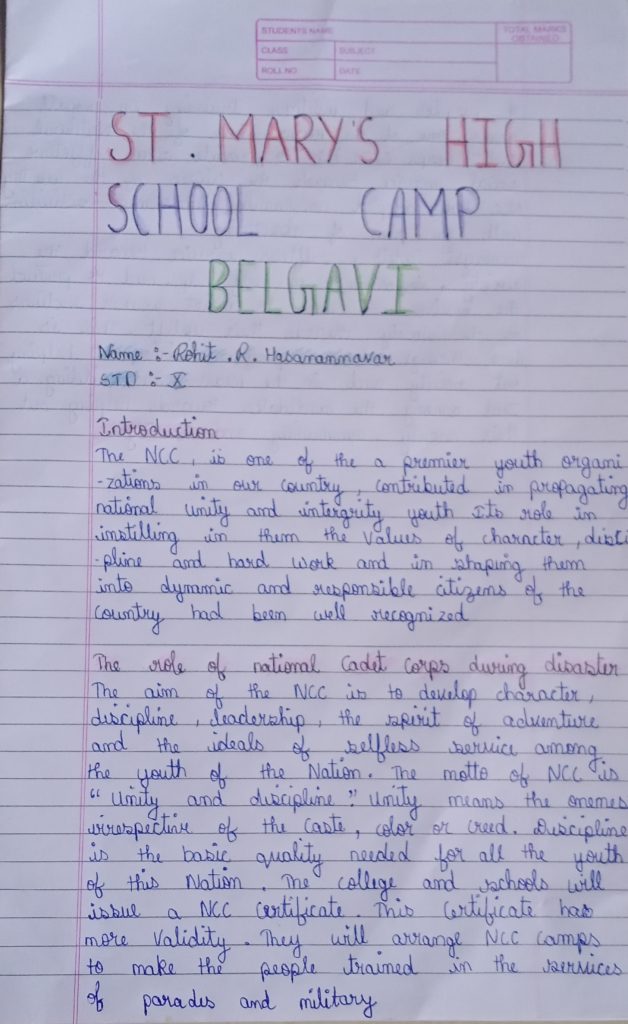 STUDENTS NAME
TOTAL MARKS
OBTAINED
CLASS
SUBJECT
ROLL NO
DATE
ST. MARY'S HIGH
SCHOOL CAMP
BELGAVI
Name :- Rohit .R. Hasanamnavar
STD :- X
Introduction
The NCC, is one of the a premier youth organi
-zations in our country, contributed in propagating
national unity and intergrity youth Its role in
instilling in them the values of character, disci
-pline and hard work and in shaping them
into dynamic and responsible citizens of the
country had been well recognized
The role of national Cadet Corps during disaster
The aim of the NCC is to develop character,
discipline, leadership, the spirit of adventure
and the ideals of selfless service among
the youth of the Nation. The motto of NCC is
"Unity and discipline" Unity means the onemes
irrespective of the caste, color or creed. Discipline
is the basic quality needed for all the youth
of this Nation. The college and schools will
issue a NCC certificate. This Certificate has
more validity. They will arrange NCC camps
to make the people trained in the services
of parades and military